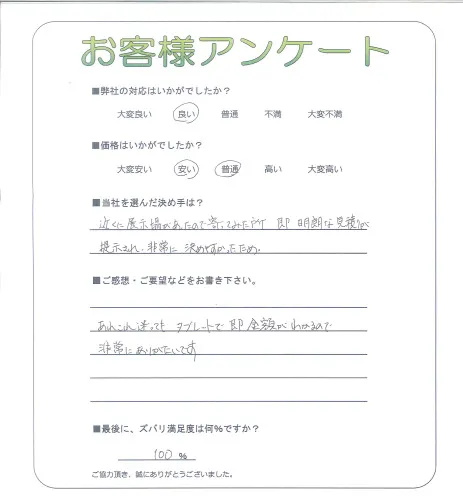 お客様アンケート
■弊社の対応はいかがでしたか？
大変良い 良い 普通 不満 大変不満
■価格はいかがでしたか？
大変安い 安い 普通 高い 大変高い
■当社を選んだ決め手は？
近くに展示場があたので寄ってみた所 即 明朗な見積りが
提示され、非常に 決めやすかったため。
■ご感想・ご要望などをお書き下さい。
あれこれ迷っても タブレットで即金額がわかるので
非常にありがたいです
■最後に、ズバリ満足度は何％ですか？
100 %
ご協力頂き、誠にありがとうございました。